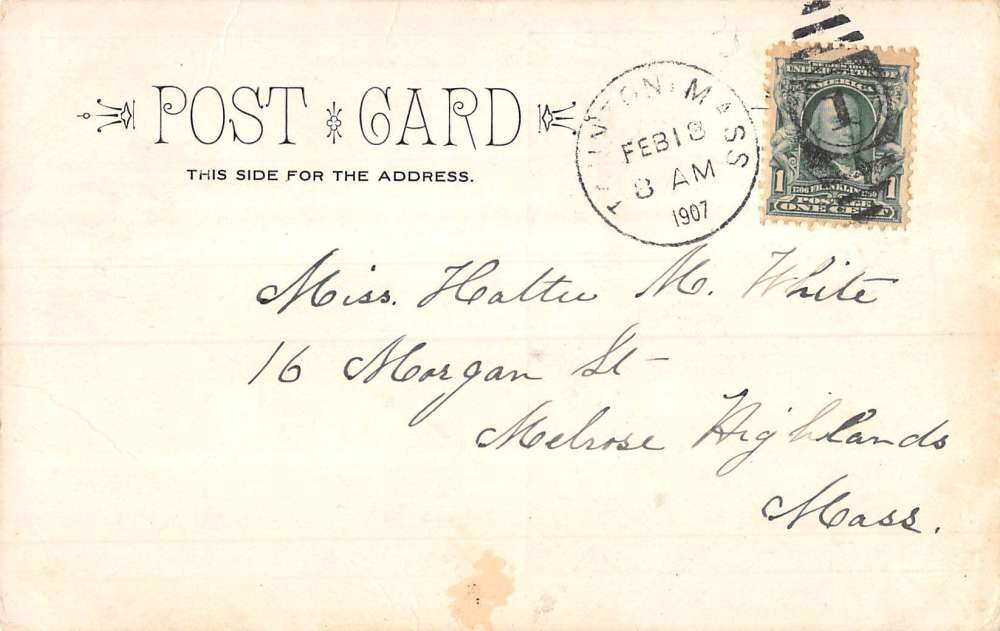 POST CARD
THIS SIDE FOR THE ADDRESS.
TAUNTON, MASS
FEB 18
8 AM
1907
UNITED STATES OF
AMERICA
1 1706 FRANKLIN 1790 1
POSTAGE
ONE CENT
Miss. Hattie M. White
16 Morgan St
Melrose Highlands
Mass.